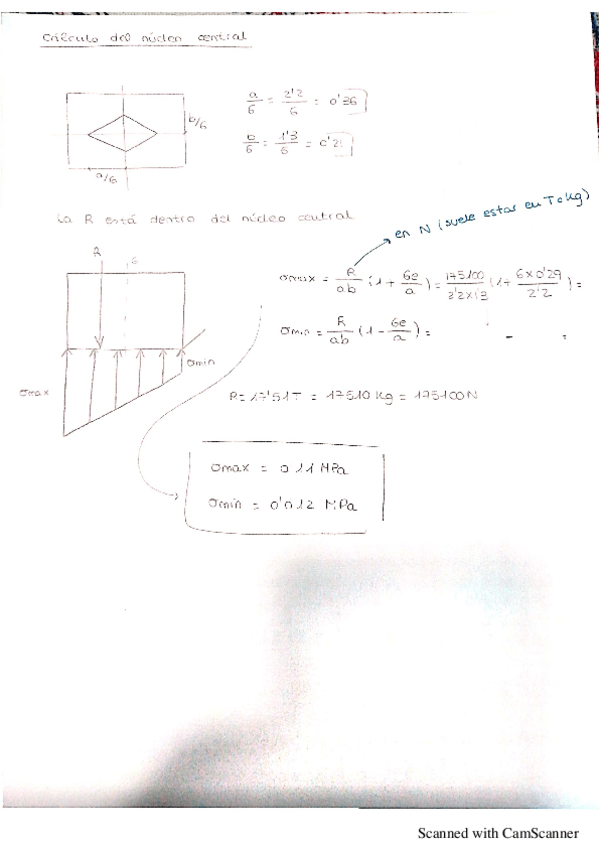 Cálculo del núcleo central
a/6 = 2'2/6 = 0'36
b/6 = 1'3/6 = 0'21
b/6
a/6
La R está dentro del núcleo central
en N (suele estar en T o kg)
R
G
σmax = R/ab (1 + 6e/a) = 175100/2'2x1'3 (1+ 6x0'29/2'2) =
σmin = R/ab (1 - 6e/a) =
σmin
σmax
R = 17'51T = 17510 Kg = 175100 N
σmax = 0'11 MPa
σmin = 0'012 MPa
Scanned with CamScanner